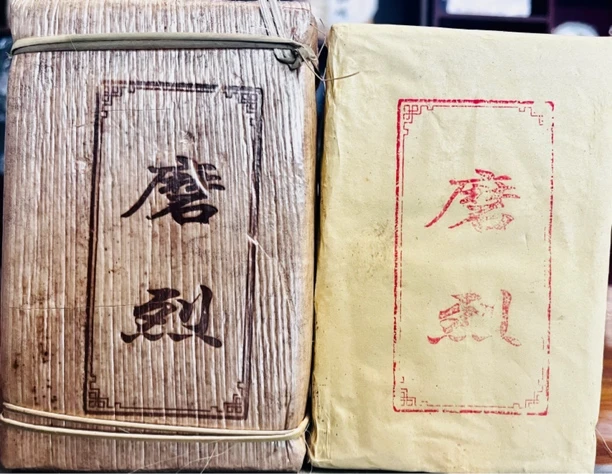 磨
烈
磨
烈